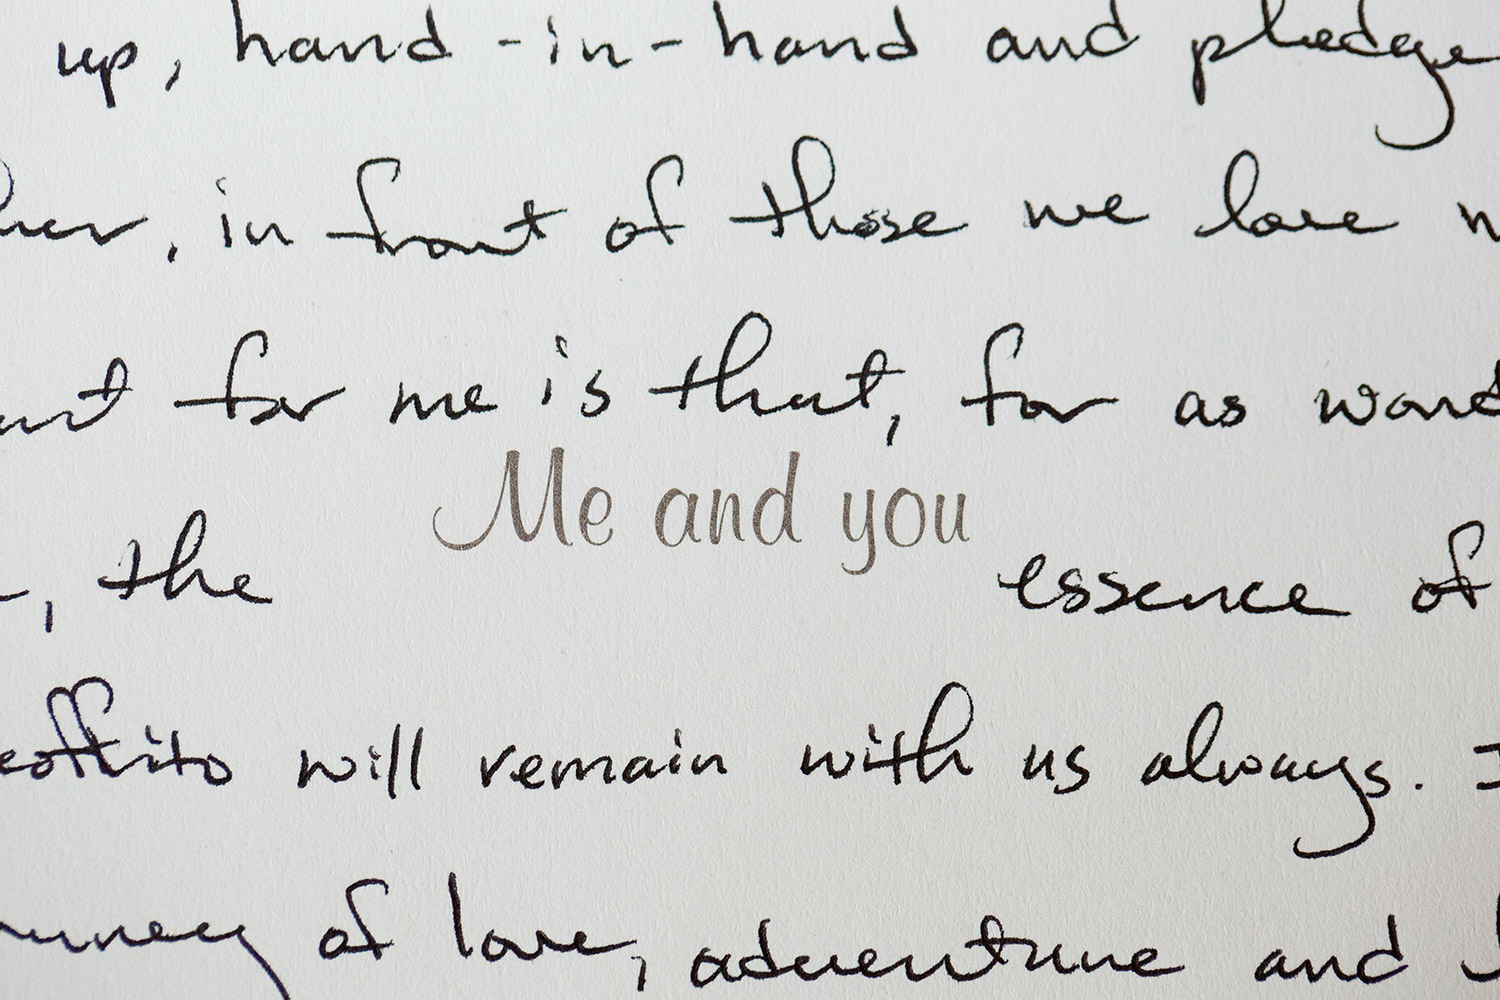 up, hand-in-hand and pledge
, in front of those we love
for me is that, for as
Me and you
, the essence of
will remain with us always.
of love, adventure and